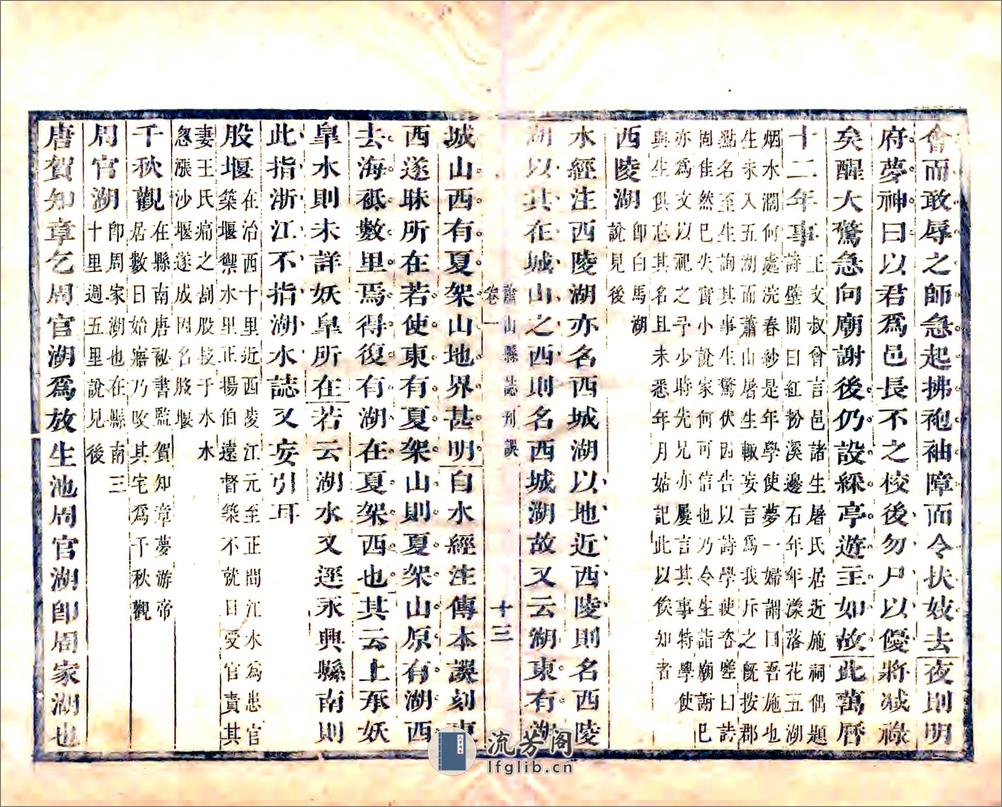 會而敢辱之師急起拂袍袖障而令扶妓去夜則明
府夢神曰以君爲邑長不之校後勿尸以優將減祿
矣醒大驚急向廟謝後仍設綵亭遊主如故此萬曆
十二年事王文叔曾言邑諸生屠氏居近施祠偶題
詩壁間曰紅粉溪邊石年年漾落花五湖
烟水濶何處浣春紗是年學使夢一婦謂曰吾施也
生未入五湖而蕭山屠生輙妄言爲我斥之旣按郡
點名至生詢其事生驚伏因告以詩學使咨嗟曰
周佳然已失實小說家何可信也乃令生詣廟謝已
亦爲文以祀之予少時先兄亦屢言其事特學使
與生俱忘其名且未悉年月姑記此以俟知者
西陵湖卽白馬湖
說見後
水經注西陵湖亦名西城湖以地近西陵則名西陵
湖以其在城山之西則名西城湖故又云湖東有湖
蕭山縣誌刊誤
卷一
十三
城山西有夏架山地界甚明自水經注傳本誤刻東
西遂昧所在若使東有夏架山則夏架山原有湖西
去海秪數里焉得復有湖在夏架西也其云上承妖
臯水則未詳妖臯所在若云湖水又逕永興縣南則
此指浙江不指湖水誌又安引耳
股堰在治西十里近西陵江元至正間江水爲患官
築堰禦水里正楊伯遠督築不就日受官責其
妻王氏痛之割股投于水水
忽漲沙堰遂成因名股堰
千秋觀在縣南唐秘書監賀知章夢游帝
居數日始寤乃改其宅爲千秋觀
周官湖卽周家湖也在縣南三
十里週五里說見後
唐賀知章乞周官湖爲放生池周官湖卽周家湖也
流芳閣
lfglib.cn